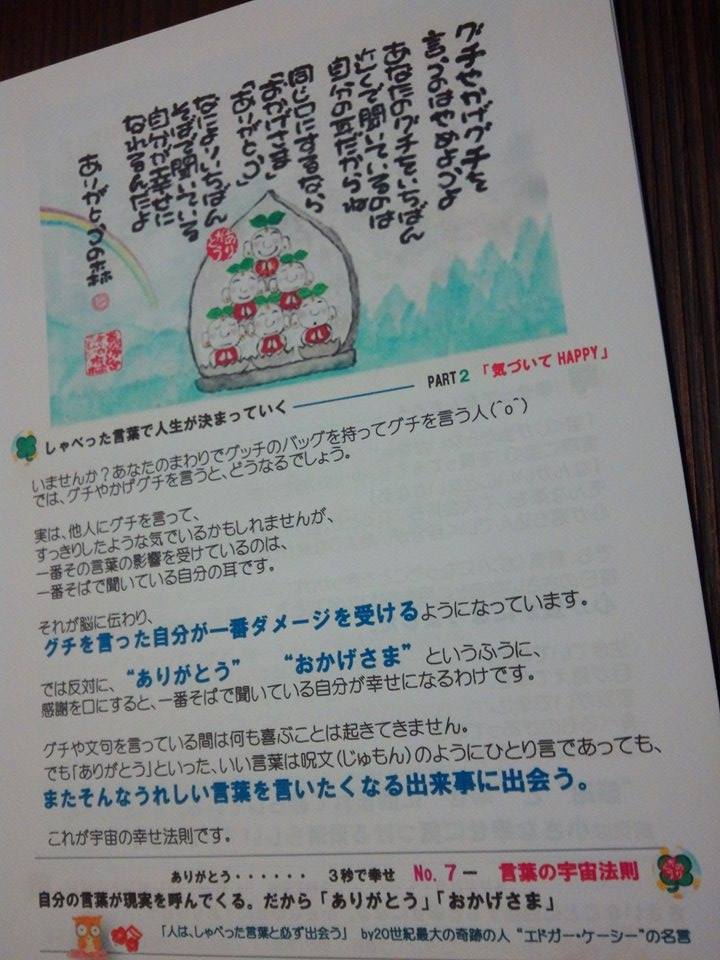 グチやかげグチを
言うのはやめようよ
あなたのグチをいちばん
近くで聞いているのは
自分の耳だからね
同じ口にするなら
「おかげさま」
「ありがとう」
なによりいちばん
そばで聞いている
自分が幸せに
なれるんだよ
ありがとうの森
PART2 「気づいて HAPPY」
しゃべった言葉で人生が決まっていく
いませんか?あなたのまわりでグッチのバッグを持ってグチを言う人(^o^)
では、グチやかげグチを言うと、どうなるでしょう。
実は、他人にグチを言って、
すっきりしたような気でいるかもしれませんが、
一番その言葉の影響を受けているのは、
一番そばで聞いている自分の耳です。
それが脳に伝わり、
グチを言った自分が一番ダメージを受けるようになっています。
では反対に、“ありがとう” “おかげさま” というふうに、
感謝を口にすると、一番そばで聞いている自分が幸せになるわけです。
グチや文句を言っている間は何も喜ぶことは起きてきません。
でも「ありがとう」といった、いい言葉は呪文(じゅもん)のようにひとり言であっても、
またそんなうれしい言葉を言いたくなる出来事に出会う。
これが宇宙の幸せ法則です。
ありがとう・・・・・・ 3秒で幸せ No.7ー 言葉の宇宙法則
自分の言葉が現実を呼んでくる。だから「ありがとう」「おかげさま」
「人は、しゃべった言葉と必ず出会う」 by20世紀最大の奇跡の人 “エドガー・ケーシー”の名言